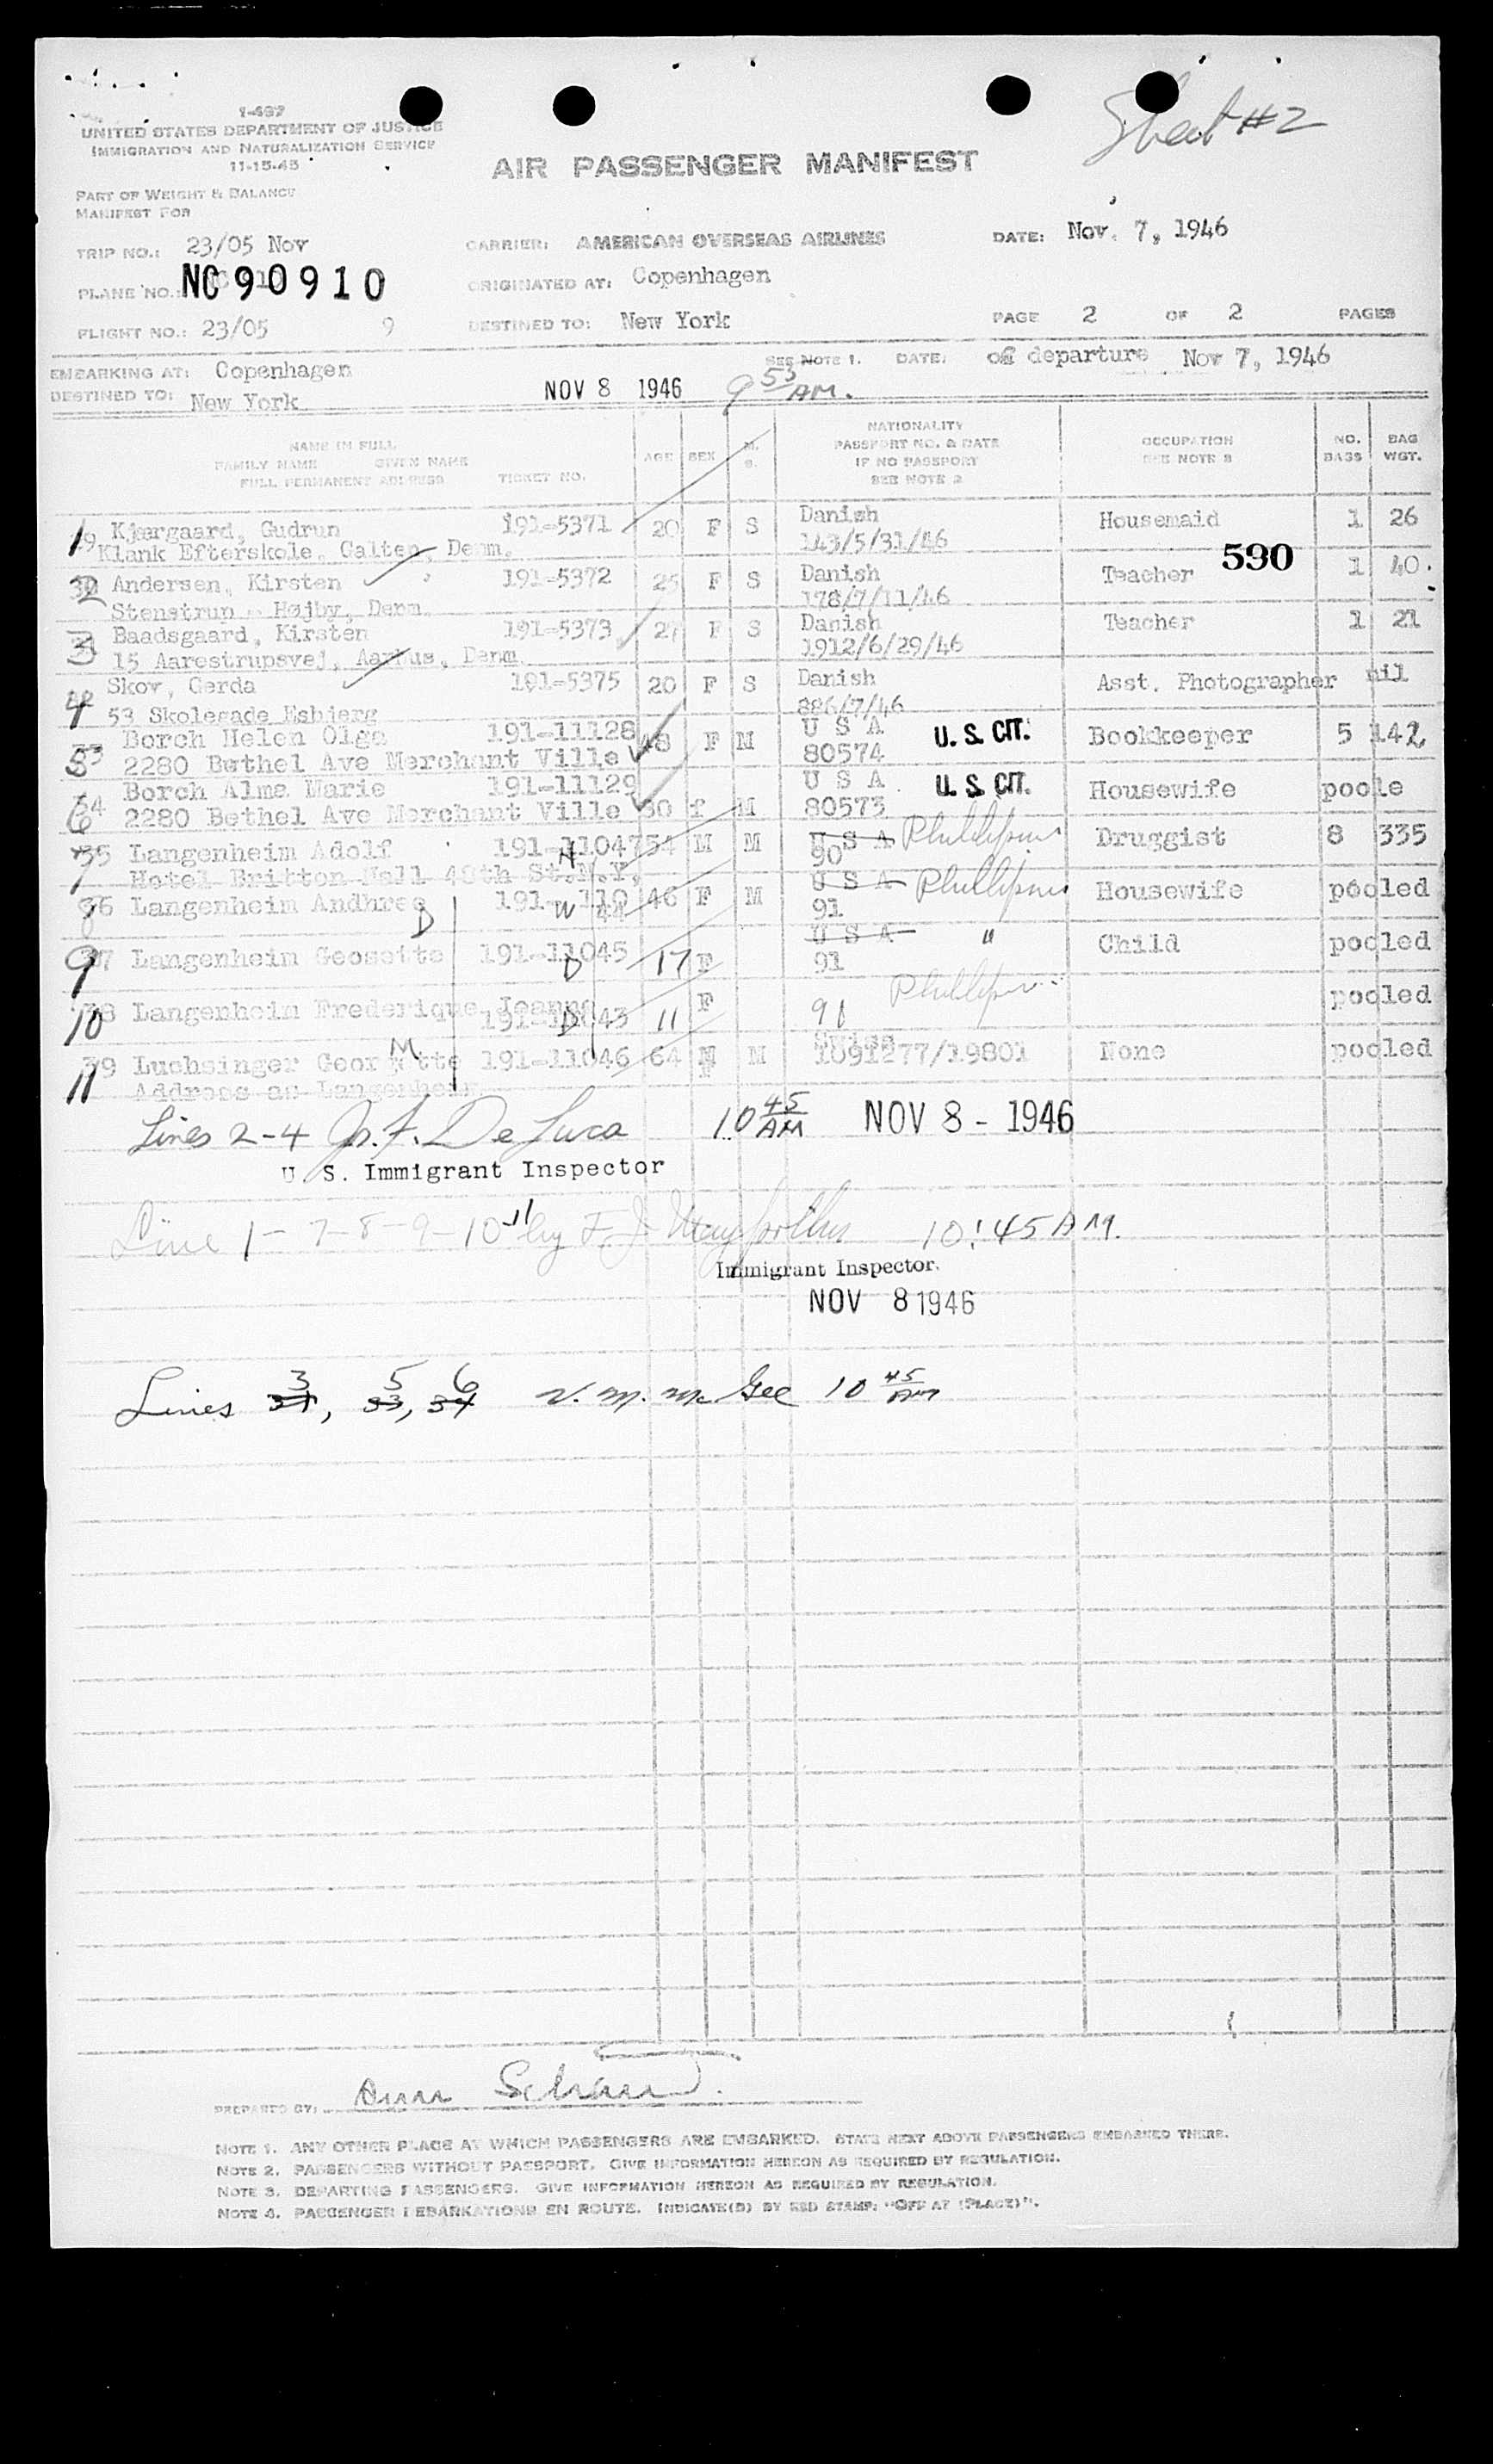 Sheet #2
I-487
UNITED STATES DEPARTMENT OF JUSTICE
IMMIGRATION AND NATURALIZATION SERVICE
11-15-45
AIR PASSENGER MANIFEST
PART OF WEIGHT & BALANCE
MANIFEST FOR
TRIP NO.: 23/05 Nov CARRIER: AMERICAN OVERSEAS AIRLINES DATE: Nov. 7, 1946
PLANE NO.: NC90910 ORIGINATED AT: Copenhagen
FLIGHT NO.: 23/05 9 DESTINED TO: New York PAGE 2 OF 2 PAGES
EMBARKING AT: Copenhagen SEE NOTE 1. DATE: of departure Nov 7, 1946
DESTINED TO: New York NOV 8 1946 9 53 AM.
NAME IN FULL
FAMILY NAME GIVEN NAME
FULL PERMANENT ADDRESS TICKET NO. AGE SEX M. S. NATIONALITY PASSPORT NO. & DATE IF NO PASSPORT SEE NOTE 2 OCCUPATION SEE NOTE 3 NO. BAGS BAG WGT.
1 Kjærgaard, Gudrun 191-5371 20 F S Danish Housemaid 1 26
Klank Efterskole, Galten, Denm. 143/5/31/46
590
2 Andersen, Kirsten 191-5372 25 F S Danish Teacher 1 40.
Stenstrup Højby, Denm. 178/7/11/46
3 Baadsgaard, Kirsten 191-5373 27 F S Danish Teacher 1 21
15 Aarestrupsvej, Aarhus, Denm. 1912/6/29/46
4 Skov, Gerda 191-5375 20 F S Danish Asst. Photographer nil
53 Skolegade Esbjerg 886/7/46
5 33 Borch Helen Olga 191-11128 48 F M U S A U. S. CIT. Bookkeeper 5 142
2280 Bethel Ave Merchant Ville 80574
6 34 Borch Alma Marie 191-11129 50 f M U S A U. S. CIT. Housewife poole
2280 Bethel Ave Merchant Ville 80573
7 35 Langenheim Adolf 191-11047 54 M M U S A Phillipine Druggist 8 335
Hotel Britton Hall 48th St.N.Y. H 90
8 36 Langenheim Andhree D 191-110 44 W 46 F M U S A Phillipine Housewife pooled
91
9 37 Langenheim Geosette 191-11045 D 17 F U S A " Child pooled
91
10 38 Langenheim Frederique Jeanne 191-11043 D 11 F 91 Phillipine pooled
11 39 Luchsinger Georgette M 191-11046 64 F M Swiss 1091277/19801 None pooled
Address as Langenheim
Lines 2-4 J. F. De Luca 10 45 AM NOV 8 - 1946
U. S. Immigrant Inspector
Line 1-7-8-9-10-11 by F. J. 10:45 AM.
Immigrant Inspector.
NOV 8 1946
3 5 6
Lines 31, 33, 34 V. M. McGee 10 45 AM
PREPARED BY:
NOTE 1. ANY OTHER PLACE AT WHICH PASSENGERS ARE EMBARKED. STATE NEXT ABOVE PASSENGERS EMBARKED THERE.
NOTE 2. PASSENGERS WITHOUT PASSPORT. GIVE INFORMATION HEREON AS REQUIRED BY REGULATION.
NOTE 3. DEPARTING PASSENGERS. GIVE INFORMATION HEREON AS REQUIRED BY REGULATION.
NOTE 4. PASSENGER DEBARKATIONS EN ROUTE. INDICATE(D) BY RED STAMP: "OFF AT (PLACE)".